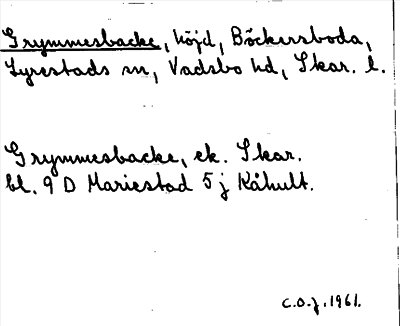 Grymmesbacke, höjd, Böckersboda,
Lyrestads sn, Vadsbo hd, Skar. l.
Grymmesbacke, ek. Skar.
bl. 9 D Mariestad 5 j Kåhult.
C.O.J. 1961.